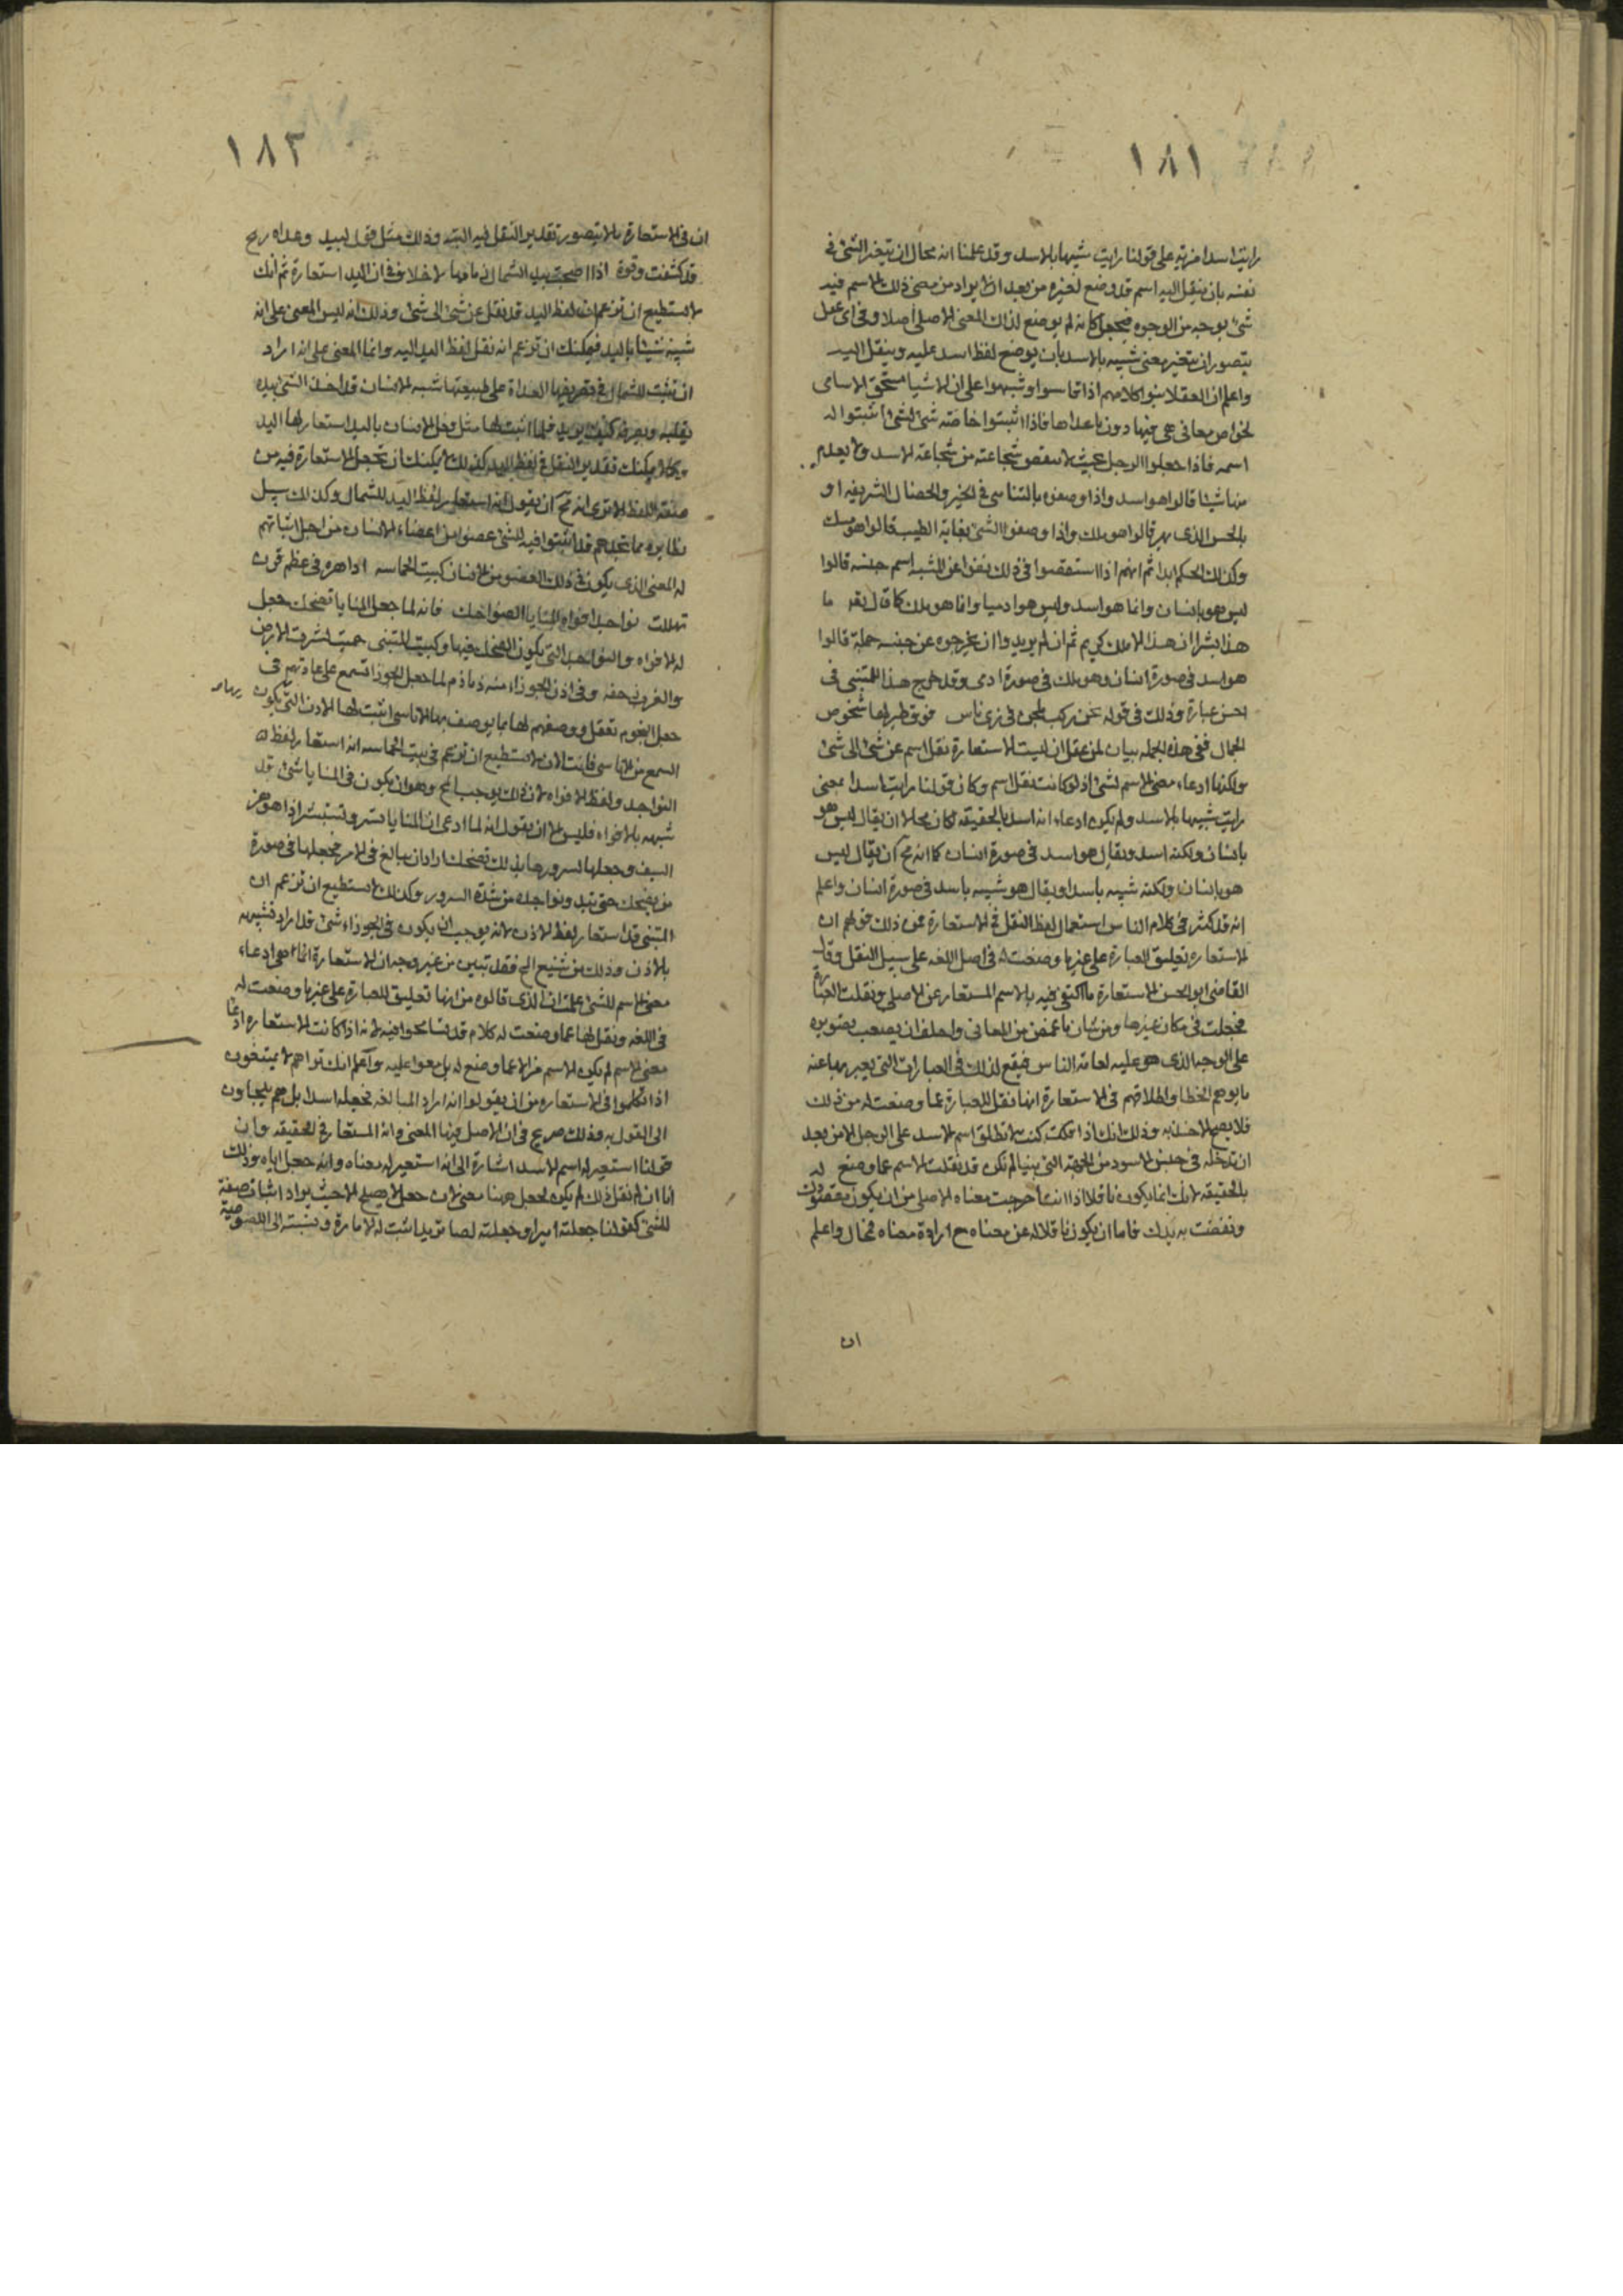 ١٨١
رايت اسدا مزية على قولنا رايت شبيها بالاسد وقد علمنا انه محال ان يتغير الشئ في
نفسه بان ينقل اليه اسم قد وضع لغيره من بعد ان لا يراد من معنى ذلك الاسم فيه
شئ بوجه من الوجوه فيجعل كانه لم يوضع لذلك المعنى الاصلي اصلا وفي اي عقل
يتصور ان يتغير معنى شبيه بالاسد بان يوضع لفظ اسد عليه وينقل اليه
واعلم ان العقلا بنوا كلامهم اذا قاسوا وشبهوا على ان الاشيا تستحق الاسامي
لخواص معاني هي فيها دون ما عداها فاذا اثبتوا خاصة شئ لشئ اثبتوا له
اسمه فاذا جعلوا الرجل بحيث لا ينقص شجاعته من شجاعة الاسد ولا يعدم
منها شيئا قالوا هو اسد واذا وصفوه بالتناهي في الخير والخصال الشريفه او
بالحسن الذي يبهر قالوا هو ملك واذا وصفوا الشئ بغاية الطيب قالوا هو مسك
وكذلك الحكم ابدا ثم انهم اذا استقصوا في ذلك نفوا عن المشبه اسم جنسه قالوا
ليس هو بانسان وانما هو اسد وليس هو ادميا وانما هو ملك كما قال تعه ما
هذا بشرا ان هذا الا ملك كريم ثم ان لم يريدوا ان يخرجوه عن جنسه جملة قالوا
هو اسد في صورة انسان وهو ملك في صورة ادمي وقد خرج هذا للمتنبي في
احسن عبارة وذلك في قوله نحن ركب ملجن في زي ناس فوق طير لها شخوص
الجمال ففي هذه الجمله بيان لمن عقل ان ليست الاستعارة نقل اسم عن شئ الى شئ
ولكنها ادعاء معنى الاسم لشئ اذ لو كانت نقل اسم وكان قولنا رايت اسدا بمعنى
رايت شبيها بالاسد ولم يكن ادعاء انه اسد بالحقيقه لكان محالا ان يقال ليس هو
بانسان ولكنه اسد ويقال هو اسد في صورة انسان كما انه مح ان يقال ليس
هو بانسان ولكنه شبيه باسد او يقال هو شبيه باسد في صورة انسان واعلم
انه قد كثر في كلام الناس استعمال لفظ النقل في الاستعارة فمن ذلك قولهم ان
الاستعاره تعليق العبارة على غير ما وضعت له في اصل اللغه على سبيل النقل وقال
القاضي ابو الحسن الاستعارة ما اكتفي فيه بالاسم المستعار عن الاصلي ونقلت العبارة
فجعلت في مكان غيرها ومن شان ما غمض من المعاني ولطف ان يصعب تصويره
على الوجه الذي هو عليه لعامة الناس فيقع لذلك في العبارات التي يعبر بها عنه
ما يوهم الخطا واطلاقهم في الاستعارة انها نقل للعبارة عما وضعت له من ذلك
فلا يصح الاخذ به وذلك انك اذا كنت لا تطلق اسم الاسد على الرجل الا من بعد
ان تدخله في جنس الاسود من الجهة التي بينا لم تكن قد نقلت الاسم عما وضع له
بالحقيقه لانك انما يكون ناقلا اذا انت اخرجت معناه الاصلي من ان يكون مقصودك
ونفضت به يدك فاما ان يكون ناقلا له عن معناه مع ارادة معناه فمحال واعلم
ان
١٨٢
ان في الاستعارة ما لا يتصور تقدير النقل فيه البتة وذلك مثل قول لبيد وغداه ريح
قد كشفت وقرة اذا اصبحت بيد الشمال زمامها لا خلاف في ان اليد استعارة ثم انك
لا تستطيع ان تزعم ان لفظ اليد قد نقل عن شئ الى شئ وذلك انه ليس المعنى على انه
شبه شيئا باليد فيمكنك ان تزعم انه نقل لفظ اليد اليه وانما المعنى على انه اراد
ان يثبت للشمال في تصريفها الغداة على طبيعتها شبه الانسان قد اخذ الشئ بيده
يقلبه ويصرفه كيف يريد فلما اثبت لها مثل فعل الانسان باليد استعار لها اليد
وكما لا يمكنك تقدير النقل في لفظ اليد كذلك لا يمكنك ان تجعل الاستعارة فيه من
صفة اللفظ الا ترى انه مح ان يقول انه استعار لفظ اليد للشمال وكذلك سبيل
نظايره مما تجدهم قد اثبتوا فيه للشئ عضوا من اعضاء الانسان من اجل اثباتهم
له المعنى الذي يكون في ذلك العضو من الانسان كبيت الحماسه اذا هزه في عظم قرن
تهللت نواجذ افواه المنايا الضواحك فانه لما جعل المنايا تضحك جعل
له الافواه والنواجذ التي يكون الضحك فيها وكبيت المتنبي خميس لشرق الارض
والغرب زحفه وفي اذن الجوزاء منه زمازم لما جعل الجوزا تسمع على عادتهم في
جعل النجوم تعقل ووصفهم لها بما يوصف به الاناسي اثبت لها الاذن التي يكون بها
السمع من الاناسي فانت الان لا تستطيع ان تزعم في بيت الحماسه انه استعار لفظ
النواجذ ولفظ الافواه لان ذلك يوجب المح وهو ان يكون في المنايا شئ قد
شبهه بالافواه فليس الا ان يقول انه لما ادعى ان المنايا تسر وتستبشر اذا هو هز
السيف وجعلها لسرورها بذلك تضحك اراد ان يبالغ في الامر فجعلها في صورة
من يضحك حتى تبد ونواجذه من شدة السرور وكذلك لا تستطيع ان تزعم ان
المتنبي قد استعار لفظ الاذن لانه يوجب ان يكون في الجوزاء شئ قد اراد تشبيهه
بالاذن وذلك من شنيع المح فقد تبين من غير وجه ان الاستعارة انما هي ادعاء
معنى الاسم للشئ علمت ان الذي قالوه من انها تعليق للعبارة على غير ما وضعت له
في اللغه ونقل لها عما وضعت له كلام قد تسامحوا فيه لانه اذا كانت الاستعاره ادعا
معنى الاسم لم يكن الاسم مزالا عما وضع له بل مقرا عليه واعلم انك تراهم لا يمتنعون
اذا تكلموا في الاستعاره من ان يقولوا انه اراد المبالغه فجعله اسدا بل هم يلجئون
الى القول به وذلك صريح في ان الاصل فيها المعنى وانه المستعار في الحقيقه وان
قولنا استعير له اسم الاسد اشارة الى انه استعير له معناه وانه جعل اياه وذلك
انا ان لم نقل ذلك لم يكن لجعل ههنا معنى لان جعل لا يصلح الا حيث يراد اثبات صفة
للشئ كقولنا جعلته اميرا وجعلته لصا تريد اثبت له الامارة ونسبته الى اللصوصية